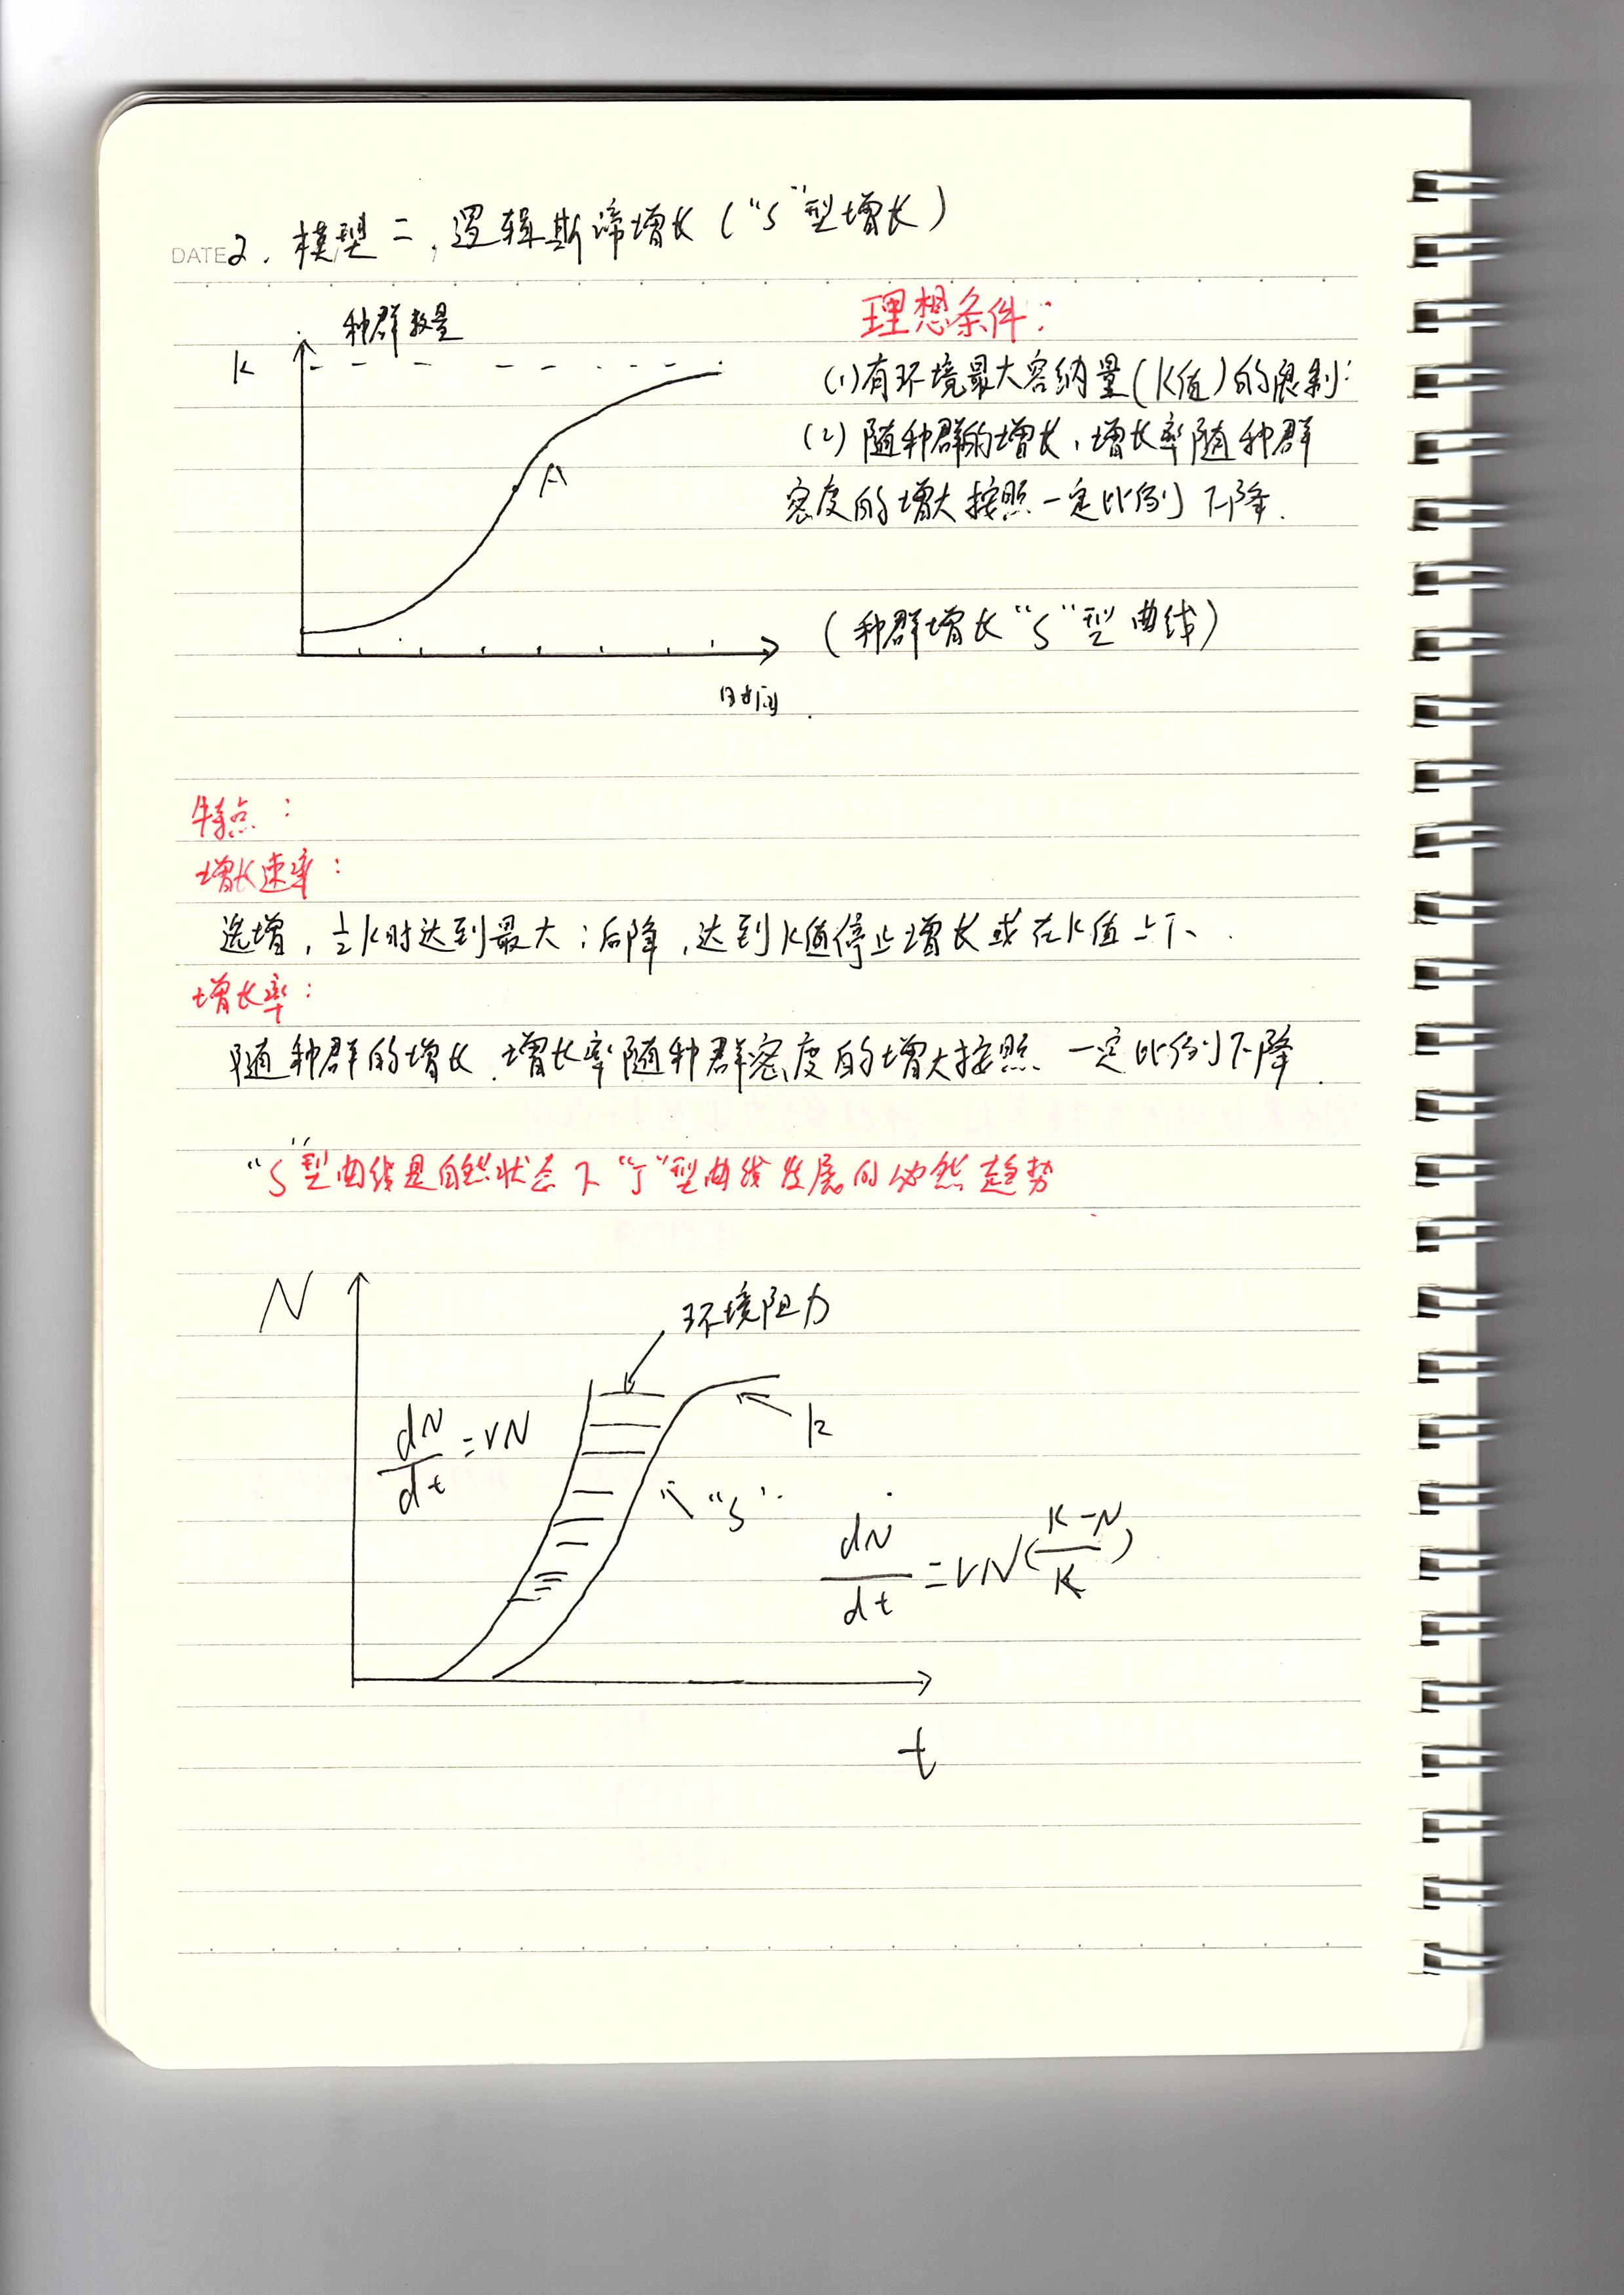 DATE
2. 模型二，逻辑斯谛增长（“S”型增长）
种群数量
K
A
时间
理想条件：
(1)有环境最大容纳量(K值)的限制:
(2) 随种群的增长，增长率随种群
密度的增大按照一定比例下降.
（种群增长“S”型曲线）
特点：
增长速率：
先增，½K时达到最大；后降，达到K值停止增长或在K值上下、.
增长率：
随种群的增长.增长率随种群密度的增大按照一定比例下降.
“S”型曲线是自然状态下“J”型曲线发展的必然趋势
N
环境阻力
dN/dt=rN
k
“S”
dN/dt=rN(K-N/K)
t